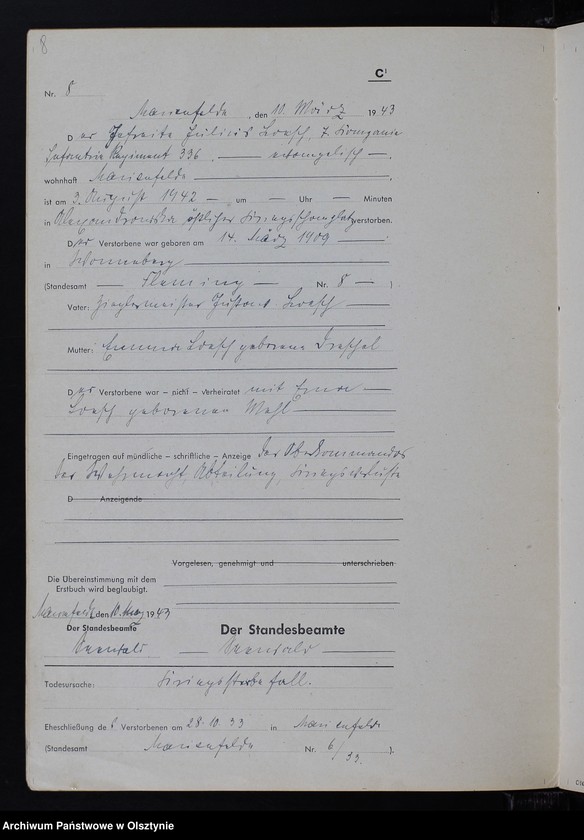 8
C¹
Nr. 8
Marienfelde, den 10. März 1943
Der Gefreite Julius Loesch, 7. Kompanie
Infanterie Regiment 336. — evangelisch —,
wohnhaft Marienfelde
ist am 3. August 1942 — um — Uhr — Minuten
in Alexandrowka östlicher Kriegsschauplatz verstorben.
Der Verstorbene war geboren am 14. März 1909
in Wonneberg
(Standesamt — Fleming — Nr. 8 — ).
Vater: Zieglermeister Gustav Loesch
Mutter: Emma Loesch geborene Dreschel
Der Verstorbene war – nicht – verheiratet mit Erna
Loesch geborenen Mehl
Eingetragen auf mündliche – schriftliche – Anzeige des Oberkommandos
der Wehrmacht, Abteilung Kriegsverluste
D Anzeigende
Vorgelesen, genehmigt und unterschrieben
Die Übereinstimmung mit dem
Erstbuch wird beglaubigt.
Marienfelde, den 10. März 1943
Der Standesbeamte
Der Standesbeamte
Todesursache: Kriegssterbefall.
Eheschließung des Verstorbenen am 28.10.33 in Marienfelde
(Standesamt Marienfelde Nr. 6/33.).
Archiwum Państwowe w Olsztynie